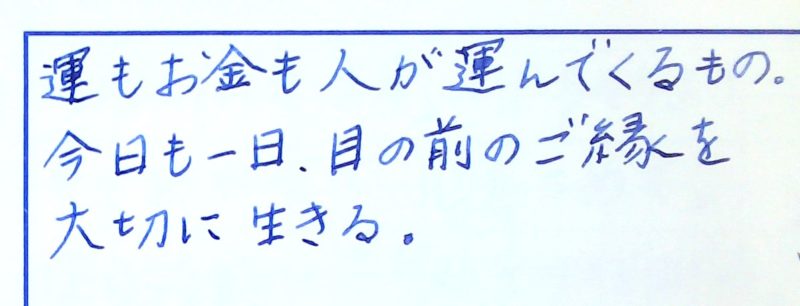 運もお金も人が運んでくるもの。
今日も一日、目の前のご縁を
大切に生きる。